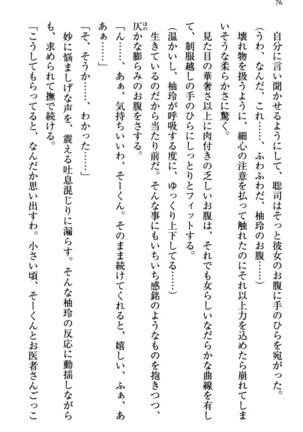 76
自分に言い聞かせるようにして、聡司はそっと彼女のお腹に手の平を宛がう。
（うわ、なんだ、これ……、ふわふわだ、柚玲のお腹……）
壊れ物を扱うように、細心の注意を払って触れたのにそれ以上力を込めたら崩れてしま
いそうな柔らかさに驚く。
見た目の華奢さ以上に肉付きの乏しいお腹は、それでも女らしいなだらかな曲線を有し
て、制服越しの手のひらにしっとりとフィットする。
（温かいし、柚玲が呼吸する度に、ゆっくり上下してる……）
生きているのだから当たり前だ。そんな事にもいちいち感銘めいたものを抱きつつ、
仄かな膨らみのお腹をさする。
「ん……、あぁ、気持ちいいわ、そーくん。そのまま続けてくれると、嬉しい、ふぁ、あ
あぁ……」
「そ、そうか……、わかった……」
妙に悩ましげな声を、震える吐息混じりに漏らす。そんな柚玲の反応に動揺しながら
も、求められて撫で続ける。
「こうしてもらってると、なんだか思い出すわ。小さい頃、そーくんとお医者さんごっこ